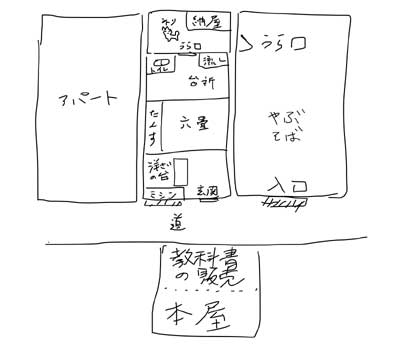 納屋
うら口
トイレ
流し
台所
アパート
たんす
六畳
ミシン
玄関
うら口
やぶ
そば
入口
道
教科書
の販売
本屋